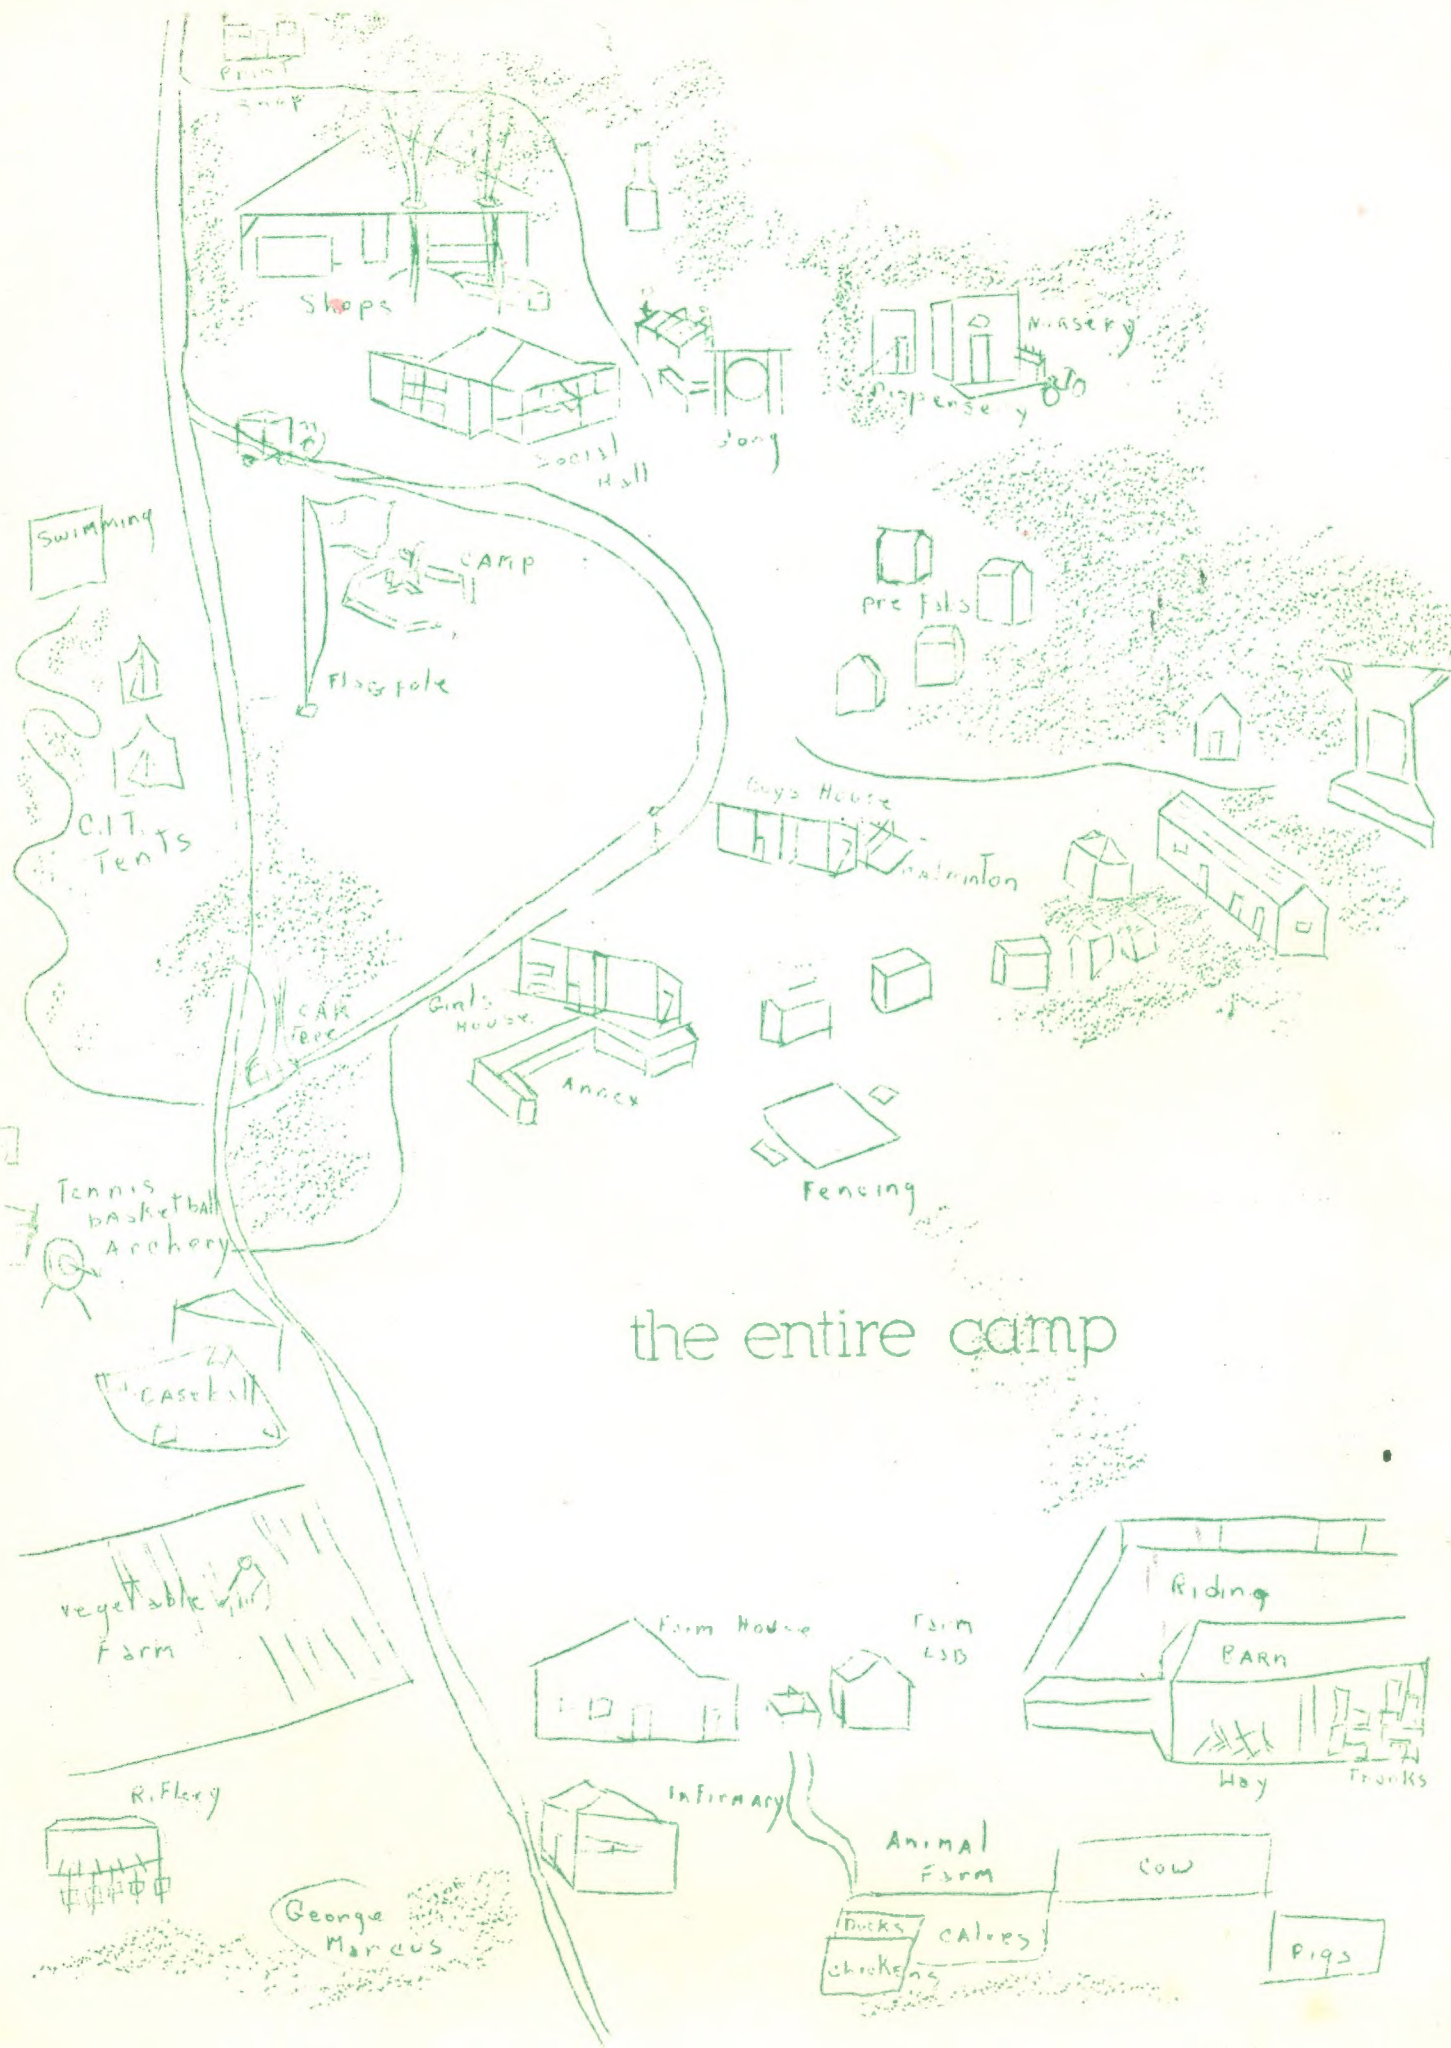 Print
Shop
Shops
Nursery
Dispensery
Gong
Social
Hall
Swimming
CAMP
Flag pole
pre fabs
C.I.T.
Tents
Boys House
Badminton
Girls
House
OAK
Tree
Annex
Fencing
Tennis
bAsketbAll
Archery
the entire camp
BAseball
vegetable
Farm
Riding
Farm House
Farm
LAB
BARn
Hay
Trunks
Riflery
InFirmAry
AnimAl
Farm
Cow
George
Marcus
Ducks
CAlves
Chickens
Pigs